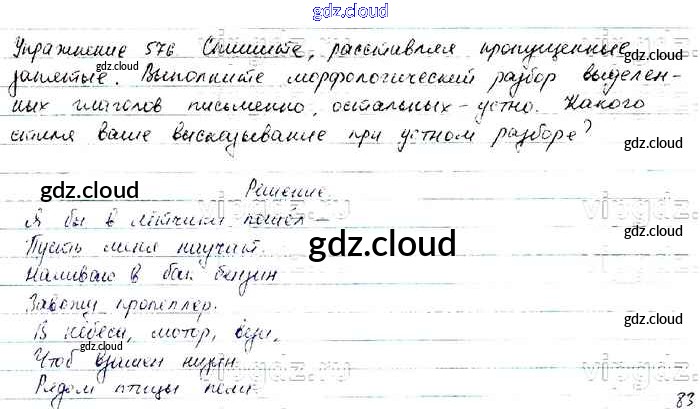 gdz.cloud
Упражнение 576 Спишите, расставляя пропущенные
запятые. Выполните морфологический разбор выделен-
ных глаголов письменно, остальных - устно. Какого
стиля ваше высказывание при устном разборе?
Решение
Я бы в лётчики пошёл -
Пусть меня научат.
Наливаю в бак бензин
Завожу пропеллер.
В небеса, мотор, вези,
Чтоб взамен низин
Рядом птицы пели
83
gdz.cloud
gdz.cloud
gdz.cloud
gdz.cloud
gdz.cloud
gdz.cloud
gdz.cloud